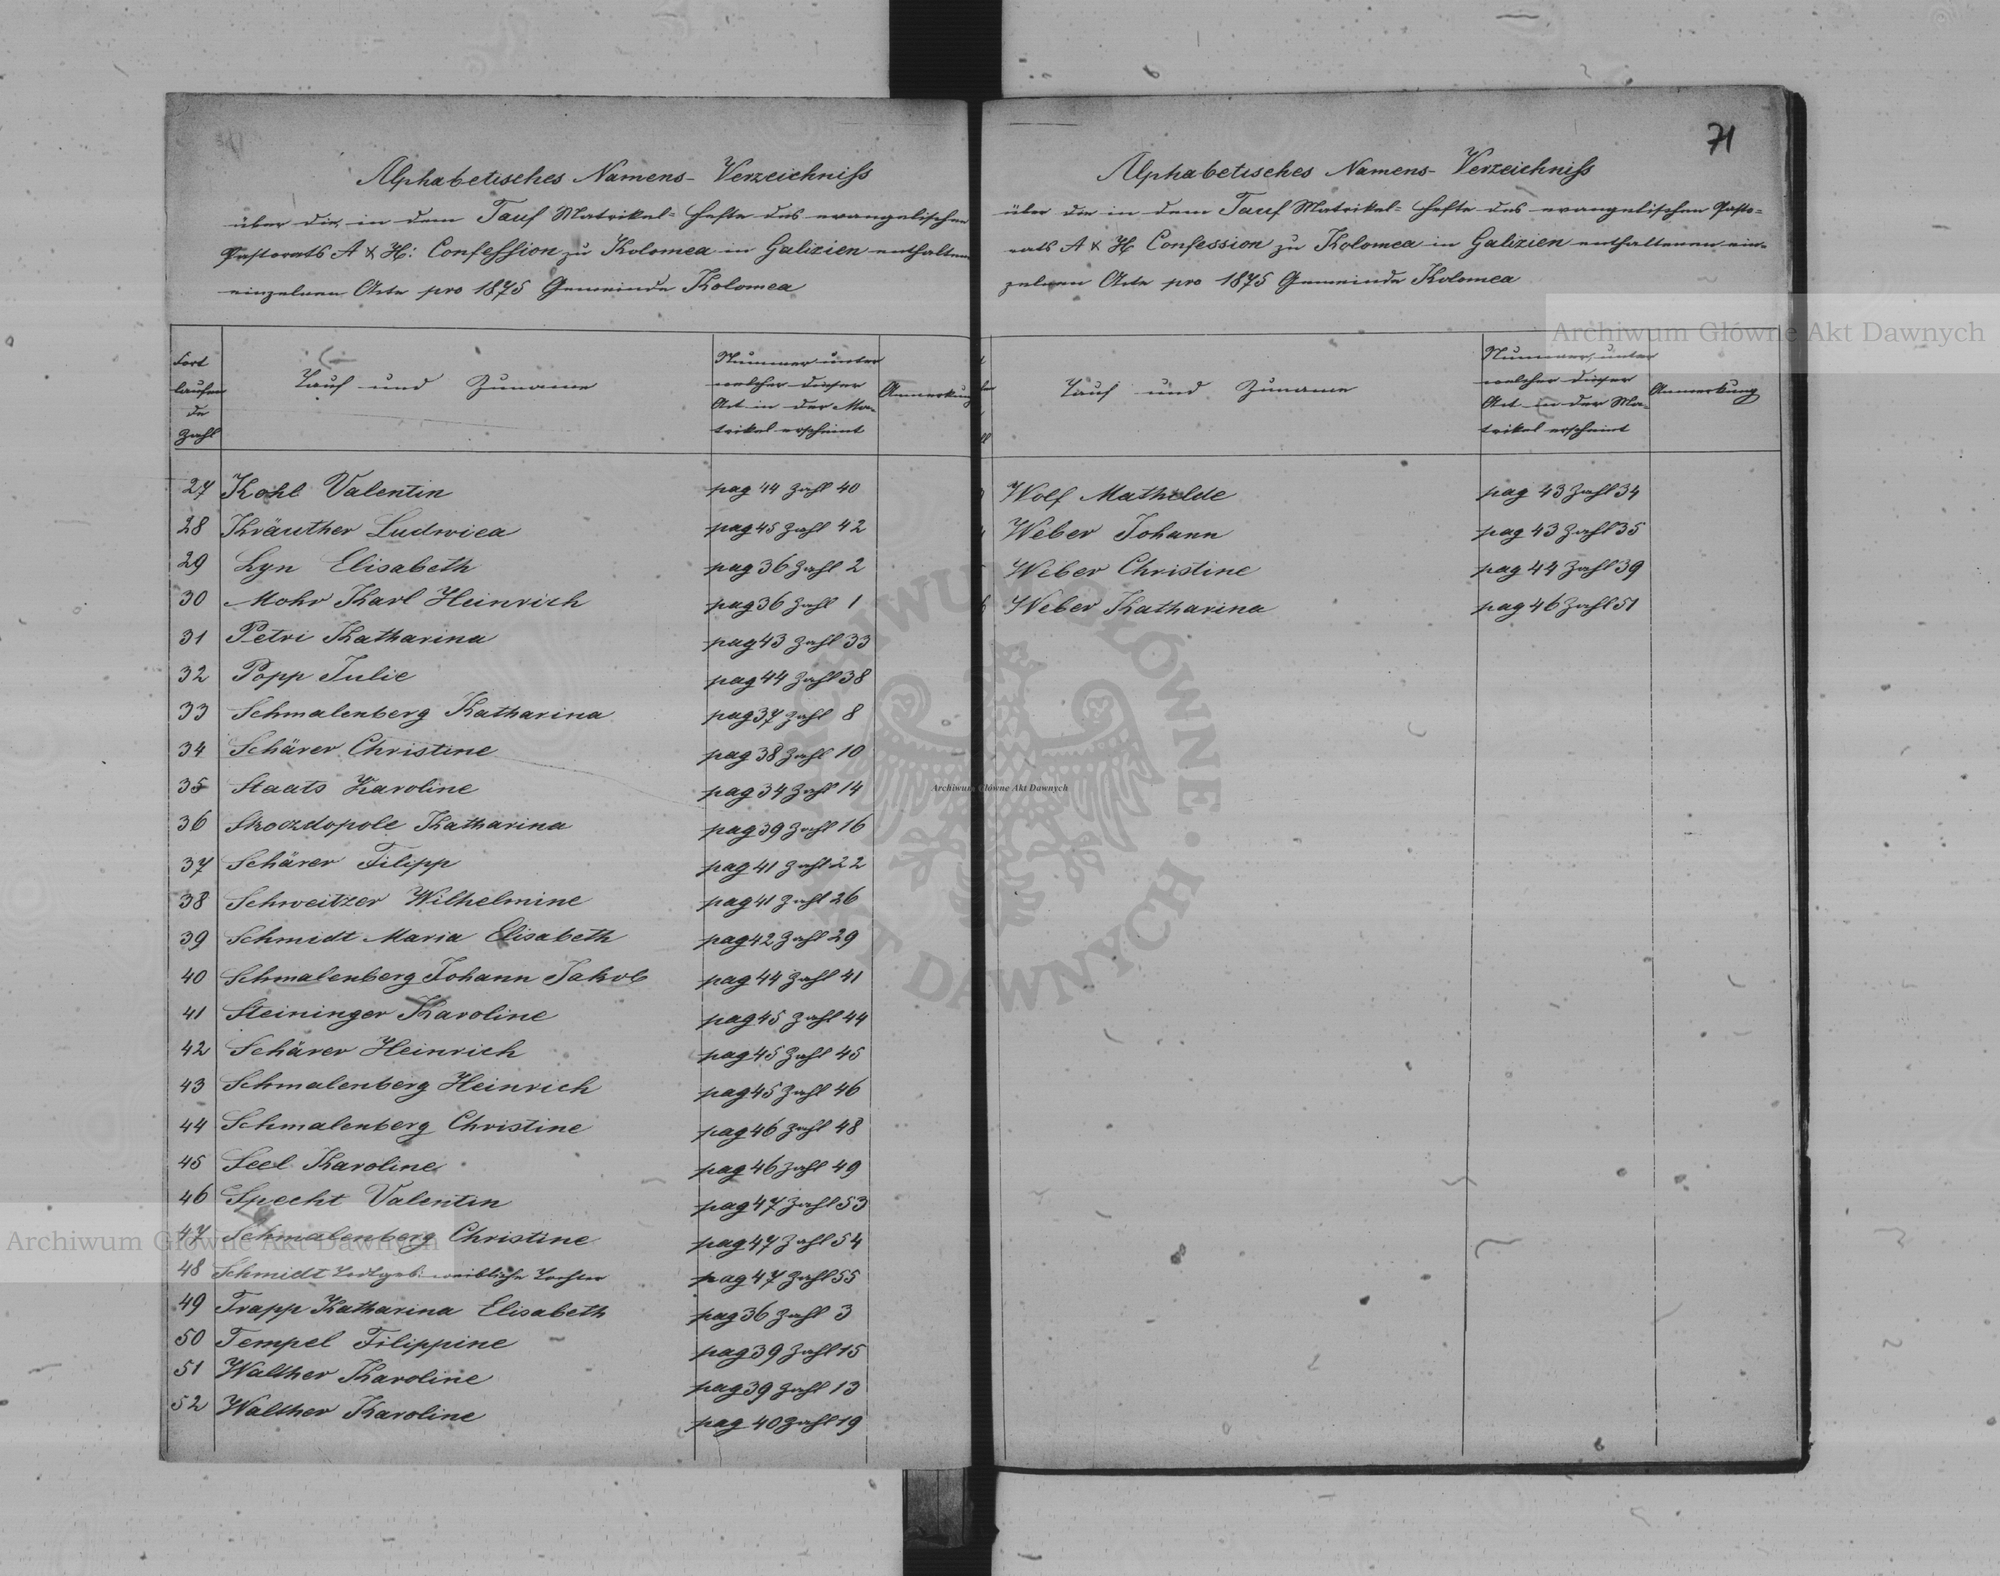 Alphabetisches Namens-Verzeichniss
über die, in dem Tauf Matrikel-Hefte des evangelischen
Pastorats A & H: Confession zu Kolomea in Galizien enthaltenen
einzelnen Acte pro 1875 Gemeinde Kolomea
Fort
laufen
de
Zahl
Tauf und Zuname
Nummer unter
welcher dieser
Act in der Ma-
trikel erscheint
Anmerkung
27 Kohl Valentin pag 44 Zahl 40
28 Kräuther Ludwica pag 45 Zahl 42
29 Lyn Elisabeth pag 36 Zahl 2
30 Mohr Karl Heinrich pag 36 Zahl 1
31 Petri Katharina pag 43 Zahl 33
32 Popp Julie pag 44 Zahl 38
33 Schmalenberg Katharina pag 37 Zahl 8
34 Schärer Christine pag 38 Zahl 10
35 Staats Karoline pag 34 Zahl 14
36 Skoczdopole Katharina pag 39 Zahl 16
37 Schärer Filipp pag 41 Zahl 22
38 Schweitzer Wilhelmine pag 41 Zahl 26
39 Schmidt Maria Elisabeth pag 42 Zahl 29
40 Schmalenberg Johann Jakob pag 44 Zahl 41
41 Steininger Karoline pag 45 Zahl 44
42 Schärer Heinrich pag 45 Zahl 45
43 Schmalenberg Heinrich pag 45 Zahl 46
44 Schmalenberg Christine pag 46 Zahl 48
45 Seel Karoline pag 46 Zahl 49
46 Specht Valentin pag 47 Zahl 53
47 Schmalenberg Christine pag 47 Zahl 54
48 Schmidt Todtgeb: weibliche Tochter pag 47 Zahl 55
49 Trapp Katharina Elisabeth pag 36 Zahl 3
50 Tempel Filippine pag 39 Zahl 15
51 Walther Karoline pag 39 Zahl 13
52 Walther Karoline pag 40 Zahl 19
71
Alphabetisches Namens-Verzeichniss
über die in dem Tauf Matrikel-Hefte des evangelischen Pasto-
rats A & H. Confession zu Kolomea in Galizien enthaltenen ein-
zelnen Acte pro 1875 Gemeinde Kolomea
Tauf und Zuname
Nummer, unter
welcher dieser
Act in der Ma-
trikel erscheint
Anmerkung
Wolf Mathilde pag 43 Zahl 34
Weber Johann pag 43 Zahl 35
Weber Christine pag 44 Zahl 39
Weber Katharina pag 46 Zahl 51
Archiwum Główne Akt Dawnych
Archiwum Główne Akt Dawnych
Archiwum Główne Akt Dawnych
ARCHIWUM GŁÓWNE · AKT DAWNYCH ·